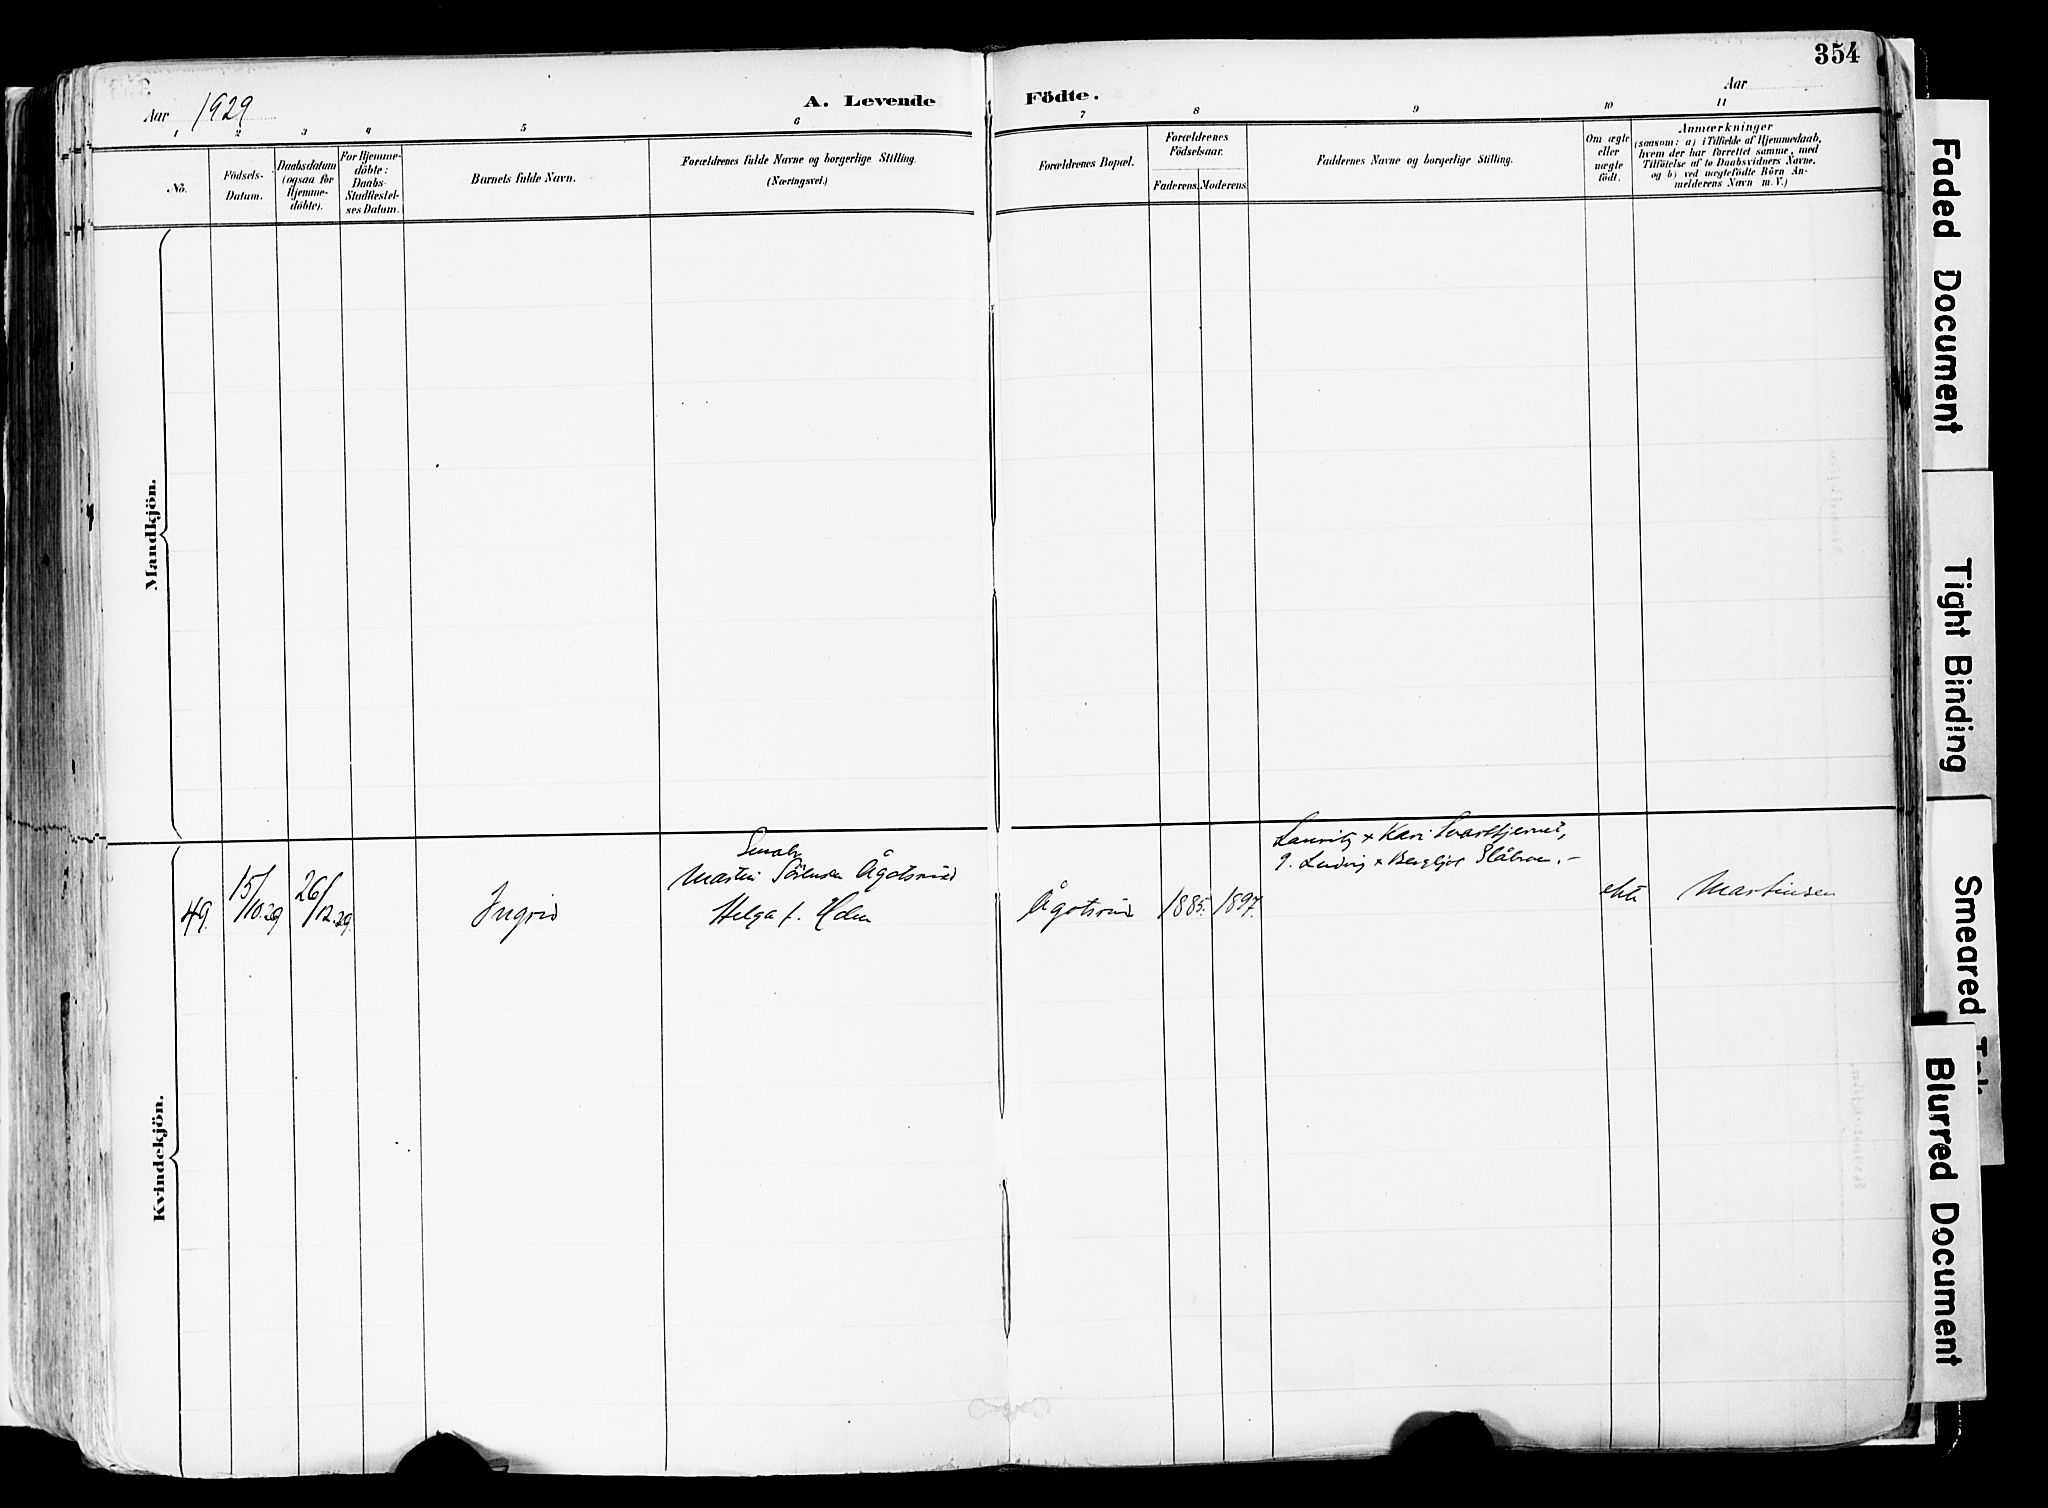 354
Aar 1929
A. Levende Födte.
Aar
1 2 3 4 5 6 7 8 9 10 11
No.
Födsels-
Datum.
Daabsdatum
(ogsaa for
Hjemme-
döbte).
For Hjemme-
döbte:
Daabs-
Stadfæstel-
ses Datum.
Barnets fulde Navn.
Forældrenes fulde Navne og borgerlige Stilling.
(Næringsvei.)
Forældrenes Bopæl.
Forældrenes
Födselsaar.
Faderens. Moderens.
Faddernes Navne og borgerlige Stilling.
Om ægte
eller
uægte
födt.
Anmærkninger
(saasom: a) i Tilfælde af Hjemmedaab,
hvem der har forrettet samme, med
Tilföielse af to Daabsvidners Navne,
og b) ved uægtefödte Börn An-
melderens Navn m. V.)
Mandkjön.
Kvindekjön.
49.
15/10.29
26/12.29.
Ingrid
Martin Sörensen Ågotsrud
Helga f.
Ågotsrud
1885.
1897.
Lauritz + Kari Svarttjernet,
g. Ludvig + Bergljot Slåbroen.-
ekte
Martinsen
Faded Document
Tight Binding
Smeared
Blurred Document